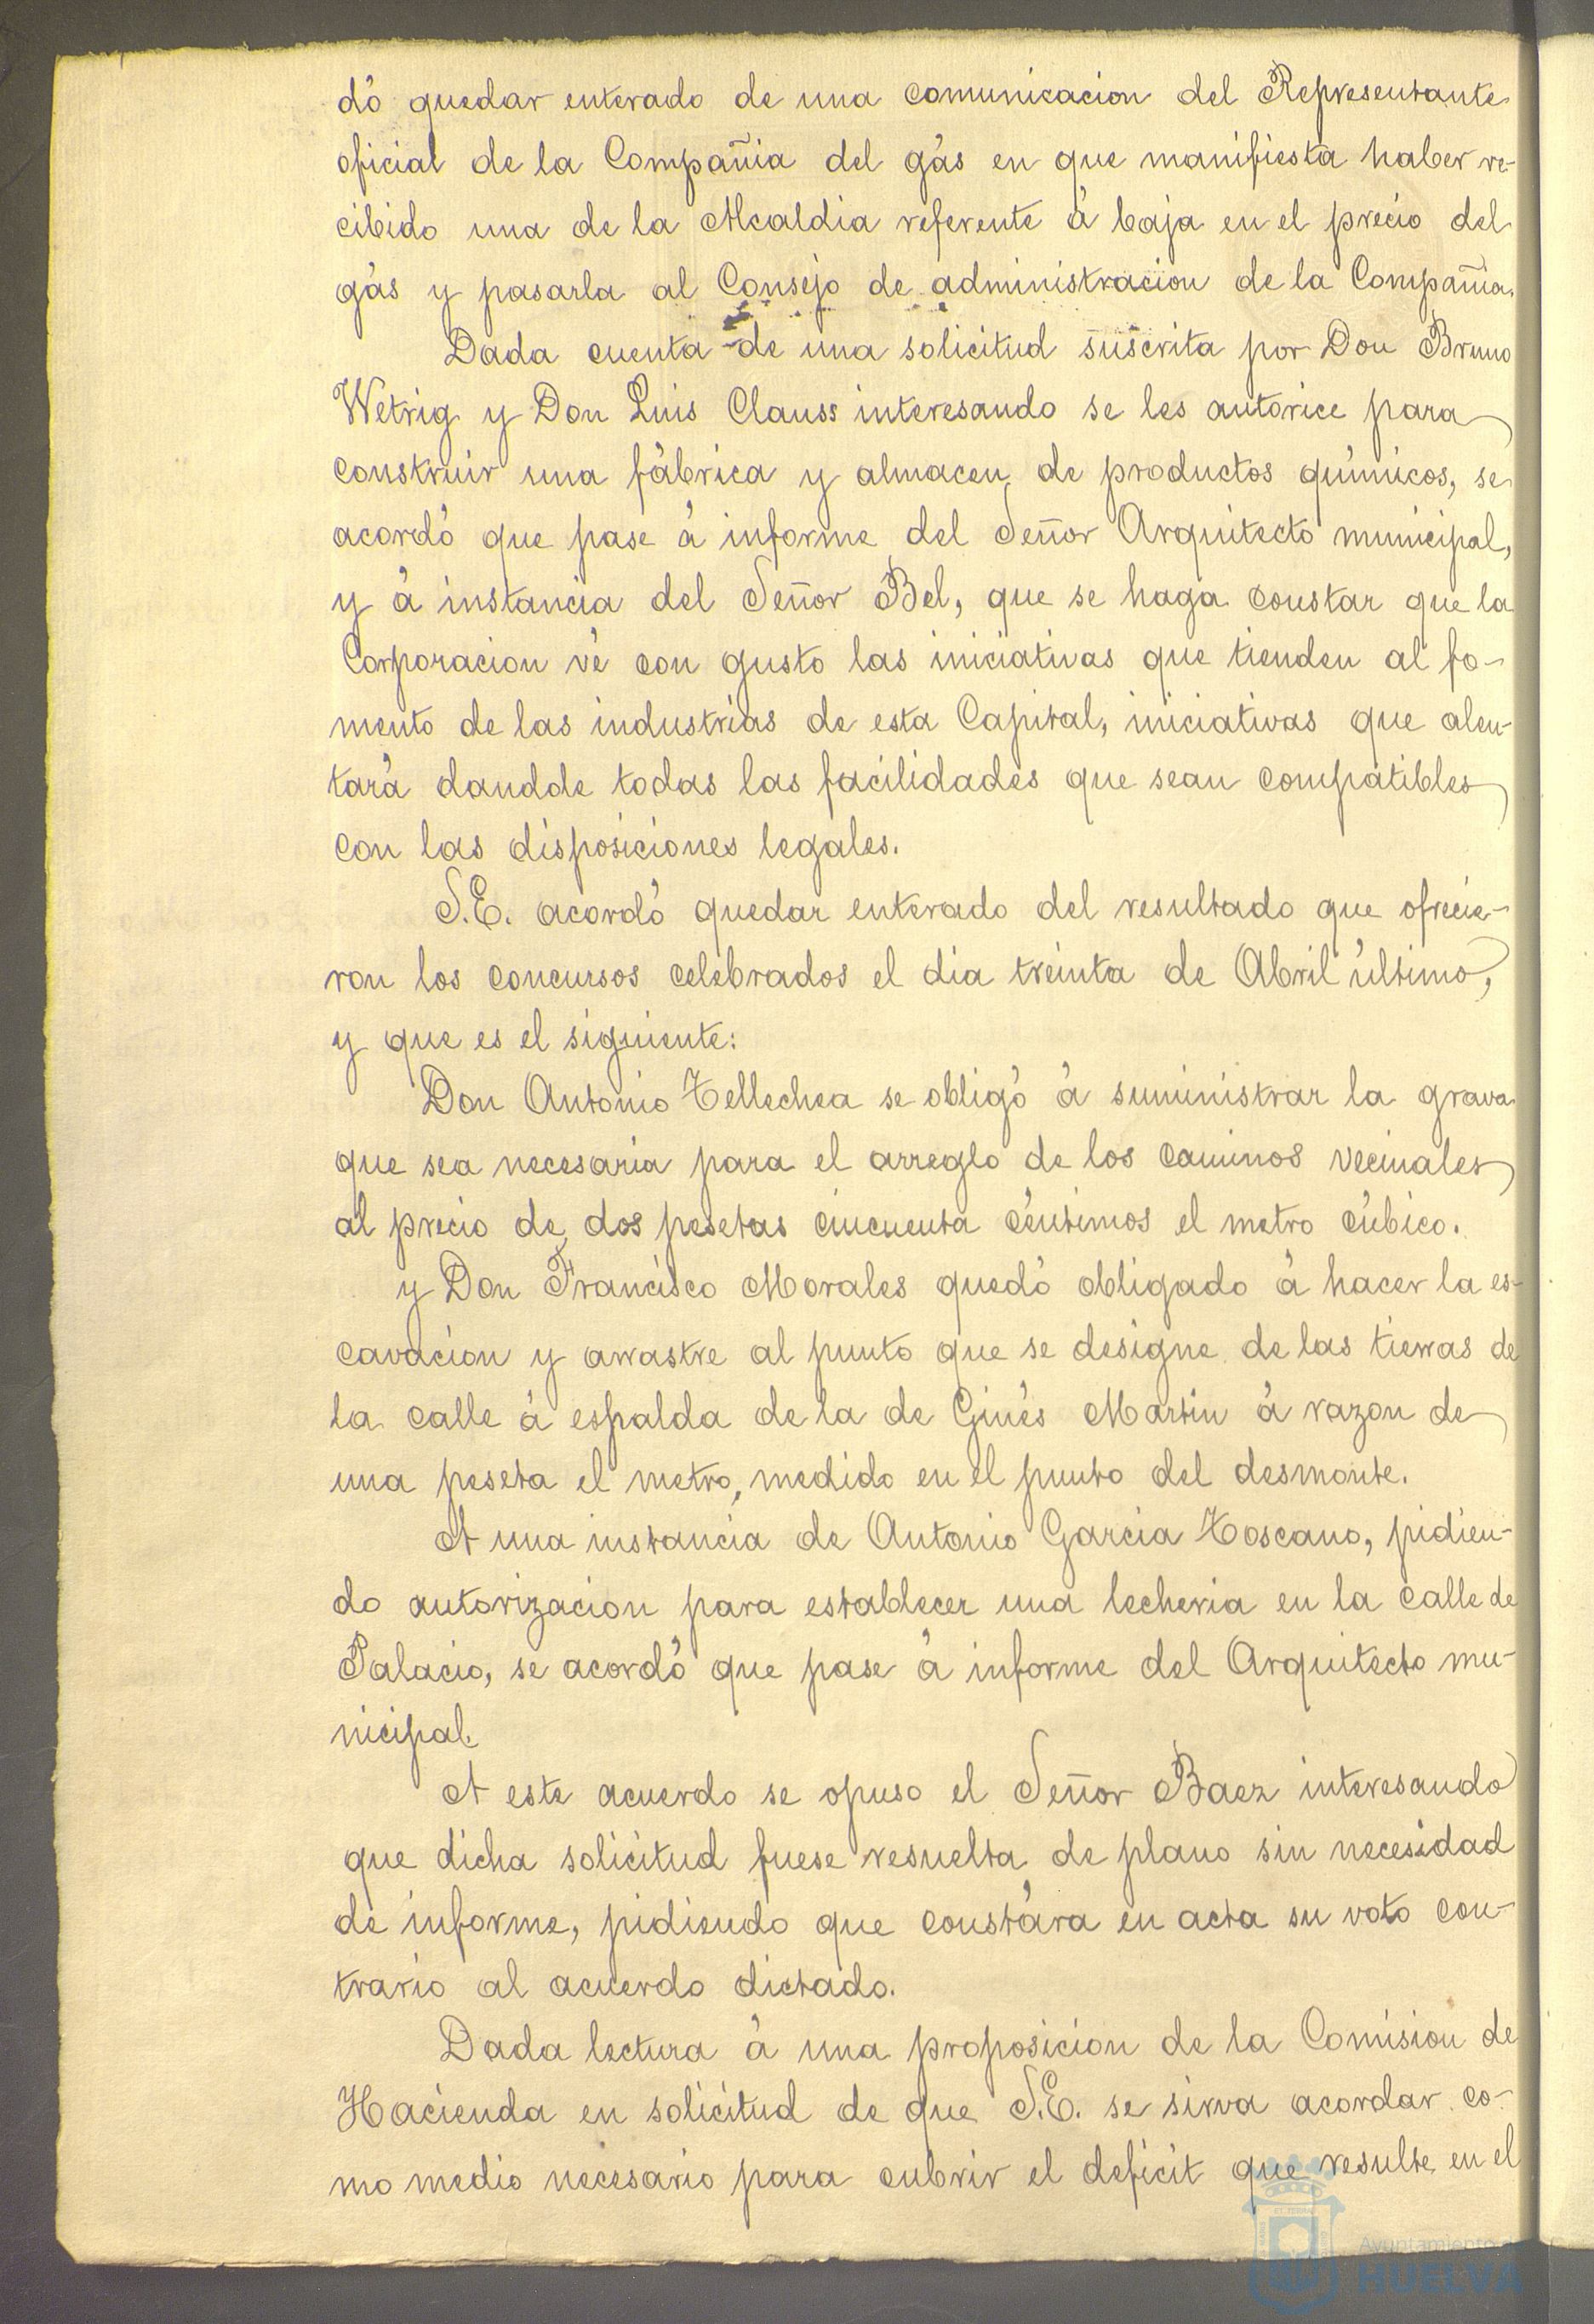 dó quedar enterado de una comunicacion del Representante
oficial de la Compañia del gás en que manifiesta haber re-
cibido una de la Alcaldia referente á baja en el precio del
gás y pasarla al Consejo de administracion de la Compañia.
Dada cuenta de una solicitud suscrita por Don Bruno
Wetrig y Don Luis Clauss interesando se les autorice para
construir una fábrica y almacen de productos químicos, se
acordó que pase á informe del Señor Arquitecto municipal,
y á instancia del Señor Bel, que se haga constar que la
Corporacion vé con gusto las iniciativas que tienden al fo-
mento de las industrias de esta Capital, iniciativas que alen-
tará dandde todas las facilidades que sean compatibles
con las disposiciones legales.
S.E. acordó quedar enterado del resultado que ofrecie-
ron los concursos celebrados el dia treinta de Abril último,
y que es el siguiente:
Don Antonio Tellechea se obligó á suministrar la grava
que sea necesaria para el arreglo de los caminos vecinales
al precio de dos pesetas cincuenta céntimos el metro cúbico.
y Don Francisco Morales quedó obligado á hacer la es-
cavacion y arrastre al punto que se designe de las tierras de
la calle á espalda de la de Ginés Martin á razon de
una peseta el metro, medido en el punto del desmonte.
A una instancia de Antonio Garcia Toscano, pidien-
do autorizacion para establecer una lecheria en la calle de
Palacio, se acordó que pase á informe del Arquitecto mu-
nicipal.
A este acuerdo se opuso el Señor Baez interesando
que dicha solicitud fuese resuelta de plano sin necesidad
de informe, pidiendo que constára en acta su voto con-
trario al acuerdo dictado.
Dada lectura á una proposicion de la Comision de
Hacienda en solicitud de que S.E. se sirva acordar co-
mo medio necesario para cubrir el deficit que resulte en el
Ayuntamiento
HUELVA